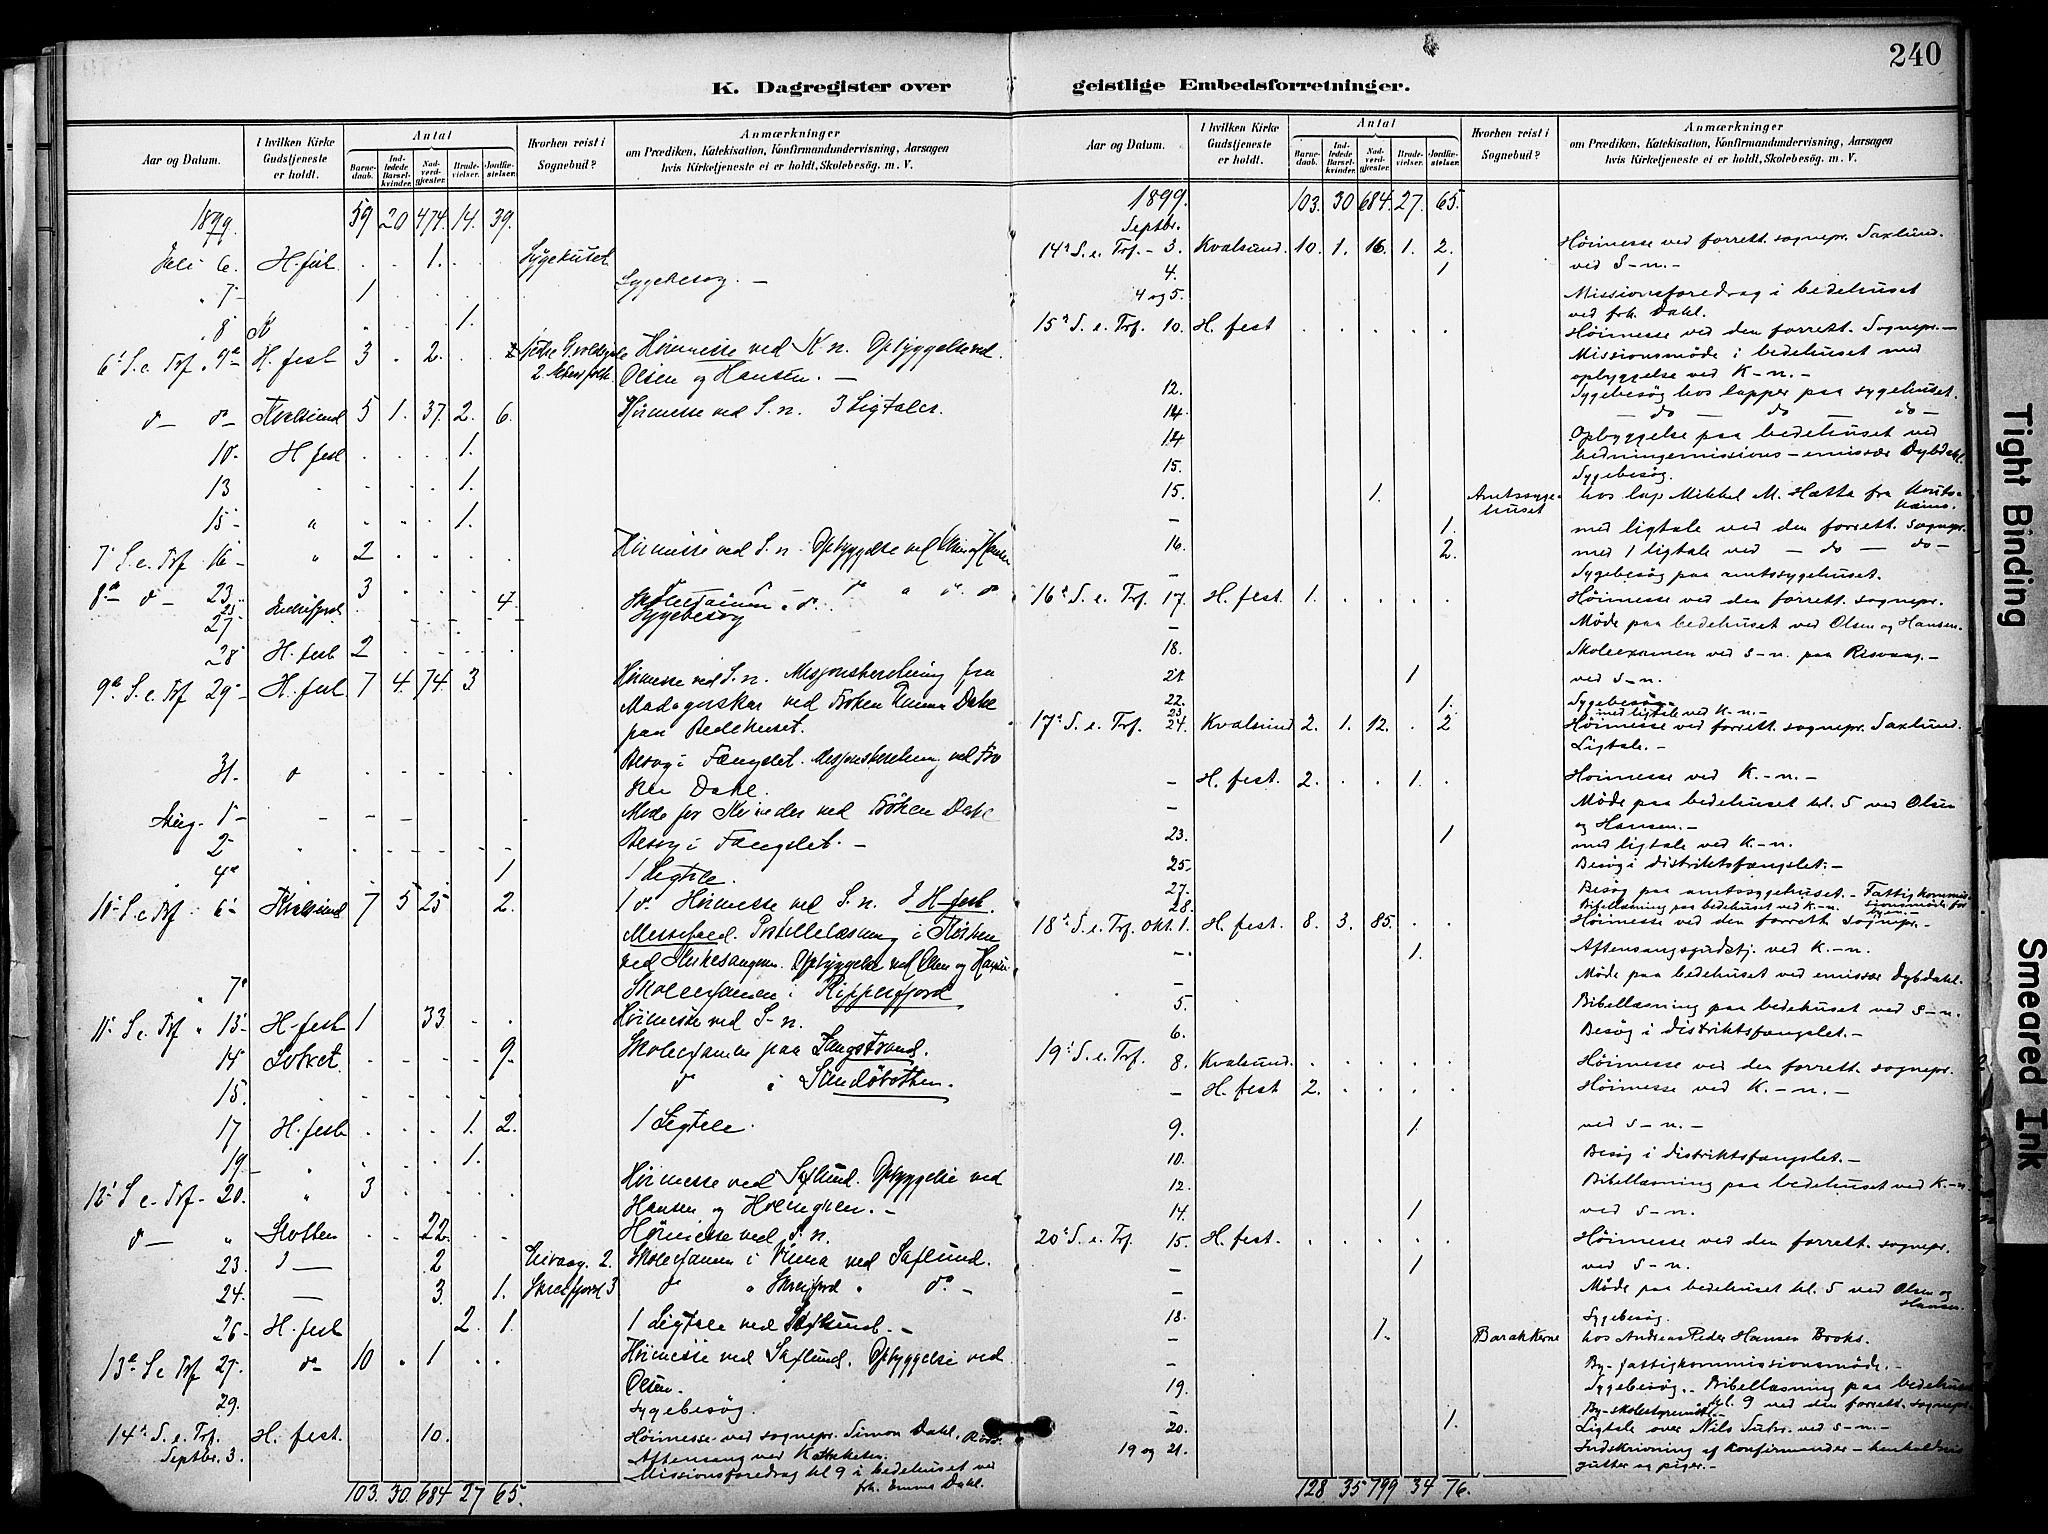 240
K. Dagregister over geistlige Embedsforretninger.
Aar og Datum.
I hvilken Kirke Gudstjeneste er holdt.
Antal
Barnedaab.
Indledede Barselkvinder.
Nadverdgjester.
Brudevielser.
Jordfæstelser.
Hvorhen reist i Sognebud?
Anmærkninger
om Prædiken, Katekisation, Konfirmandundervisning, Aarsagen
hvis Kirketjeneste ei er holdt, Skolebesøg. m. V.
1899. 59 20 474. 14. 39.
Juli 6. H. fest . . 1. . .
7 1 Sygebesøg. —
8 K 1.
6' S. e. Trf. 9 H. fest 3 . 2. . . Høimesse ved K-n. Opbyggelse ved
Olsen og Hansen. —
Kvalsund 5 1. 37. 2. 6. Høimesse ved S. n. 3 Ligtaler.
10 H. fest . . . 1.
13 " . . . 1.
15 " . . . 1.
7' S. e. Trf. 16 " 2 . . . Høimesse ved S. n. Opbyggelse ved Olsen og Hansen
8 23 3
27 4. Sygebesøg
28 H. fest 2
9 S. e. Trf 29 H. fest 7 4. 74. 3 Høimesse ved S. n.
Madagaskar ved Frøken Emma Dahl
paa Bedehuset.
31. Besøg i Fængslet.
Dahl.
Aug. 1 Møde for Kvinder ved Frøken Dahl
2 Besøg i Fængslet. —
4 1 1 Ligtale.
10 S. e. Trf 6 Kvalsund 7 5 25 2. 1 Høimesse ved S. n. I H-fest
Messefald. Postillelæsning i Kirken
ved Kirkesangeren. Opbyggelse ved Olsen og Hansen.
7 Skoleexamen i Repperfjord
11 S. e. Trf " 13 H-fest 1 33 . . Høimesse ved S-n.
14 9. Skoleexamen paa Langstrand.
15. i Sandøbotten.
17 H. fest . . . 1. 2. 1 Ligtale.
19 " 1.
12 S. e. Trf 20. " 3 Høimesse ved Saxlund. Opbyggelse ved
Hansen og
22. Høimesse ved S. n.
23. 2 2. Skoleexamen i ved Saxlund.
24. 3. 1. 3
26 H. fest 2. 1. 1 Ligtale ved Saxlund. —
13 S. e. Trf 27. 10 . 1 . . Høimesse ved Saxlund. Opbyggelse ved
Olsen.
29. Sygebesøg.
14 S. e. Trf. Septbr. 3. H. fest. 10. Høimesse ved sognepr. Simon Dahl,
Aftensang ved Katheketen.
Missionsforedrag kl 9 i bedehuset ved
frk. Emma Dahl.
103. 30. 684 27 65.
Aar og Datum.
I hvilken Kirke Gudstjeneste er holdt.
Antal
Barnedaab.
Indledede Barselkvinder.
Nadverdgjester.
Brudevielser.
Jordfæstelser.
Hvorhen reist i Sognebud?
Anmærkninger
om Prædiken, Katekisation, Konfirmandundervisning, Aarsagen
hvis Kirketjeneste ei er holdt, Skolebesøg. m. V.
1899. 103. 30 684. 27. 65.
Septbr.
14 S. e. Trf. - 3. Kvalsund 10. 1. 16. 1. 2. Høimesse ved forrett. sognepr. Saxlund.
4. 1 ved S-n. -
4 og 5. Missionsforedrag i bedehuset
ved frk. Dahl.
15 S. e. Trf. 10. H. fest . . . . . Høimesse ved den forrett. Sognepr. —
Missionsmøde i bedehuset med
opbyggelse ved K-n. -
12. Sygebesøg hos lapper paa sygehuset.
14. — do — do — do —
14 Opbyggelse paa bedehuset ved
- emissær Dybdahl.
15. Sygebesøg.
15. 1. Amtssygehuset hos lap Mikkel M. Hætta fra Kautokeino.
- 1. med ligtale ved den forrett. sognepr.
16. 2. med 1 ligtale ved — do — do —
- Sygebesøg paa amtssygehuset.
16 S. e. Trf. 17. H. fest. 1. . . . . Høimesse ved den forrett. sognepr.
- Møde paa bedehuset ved Olsen og Hansen.
18. Skoleexamen ved S-n. paa Risvaag. -
21. 1 ved S-n.
22. Sygebesøg
23 1. med ligtale ved K-n. -
17 S. e. Trf. 24. Kvalsund 2. 1. 12. . 2 Høimesse ved forrett. sognepr. Saxlund.
Ligtale. -
- H. fest. 2. . . 1. . Høimesse ved K.-n. -
- Møde paa bedehuset kl. 5 ved Olsen
og Hansen. -
23. 1 med ligtale ved K-n.
25. Besøg i distriktsfængslet. -
27. Besøg paa amtssygehuset. - Fattigkommissionsmøde for byen. -
28. Bibellæsning paa bedehuset ved K-n.
18 S. e. Trf. Okt. 1. H. fest. 8. 3. 85. . . Høimesse ved den forrett. Sognepr. -
- 1. Aftensangsgudstj. ved K-n.
- Møde paa bedehuset ved emissær Dybdahl.
5. Bibellæsning paa bedehuset ved S-n.
6. Besøg i distriktsfængslet. -
19 S. e. Trf. 8. Kvalsund. . . . . . Høimesse ved den forrett. sognepr.
- H. fest 2. . . . . Høimesse ved K. - n. -
9. 1. ved S-n. -
10. Besøg i distriktsfængslet. -
12. Bibellæsning paa bedehuset ved K-n.
14. 1 ved S-n.
20 S. e. Trf. 15. H. fest. . . . . . Høimesse ved den forrett. sognepr.
- 1 ved S-n.
- Møde paa bedehuset kl. 5 ved Olsen og Hansen.
18. Sygebesøg.
- 1. Barakkerne hos Andreas Peder Hansen Books.
- By-fattigkommissionsmøde. -
19. Sygebesøg. - Bibellæsning paa bedehuset
kl. 9 ved den forrett. sognepr.
- By-skolestyremøde
20. 1. Ligtale over Nils ved S-n. -
19 og 21. Indskrivning af konfirmander - henholdsvis
gutter og piger. -
128 35 799 34 76.
Tight Binding
Smeared Ink